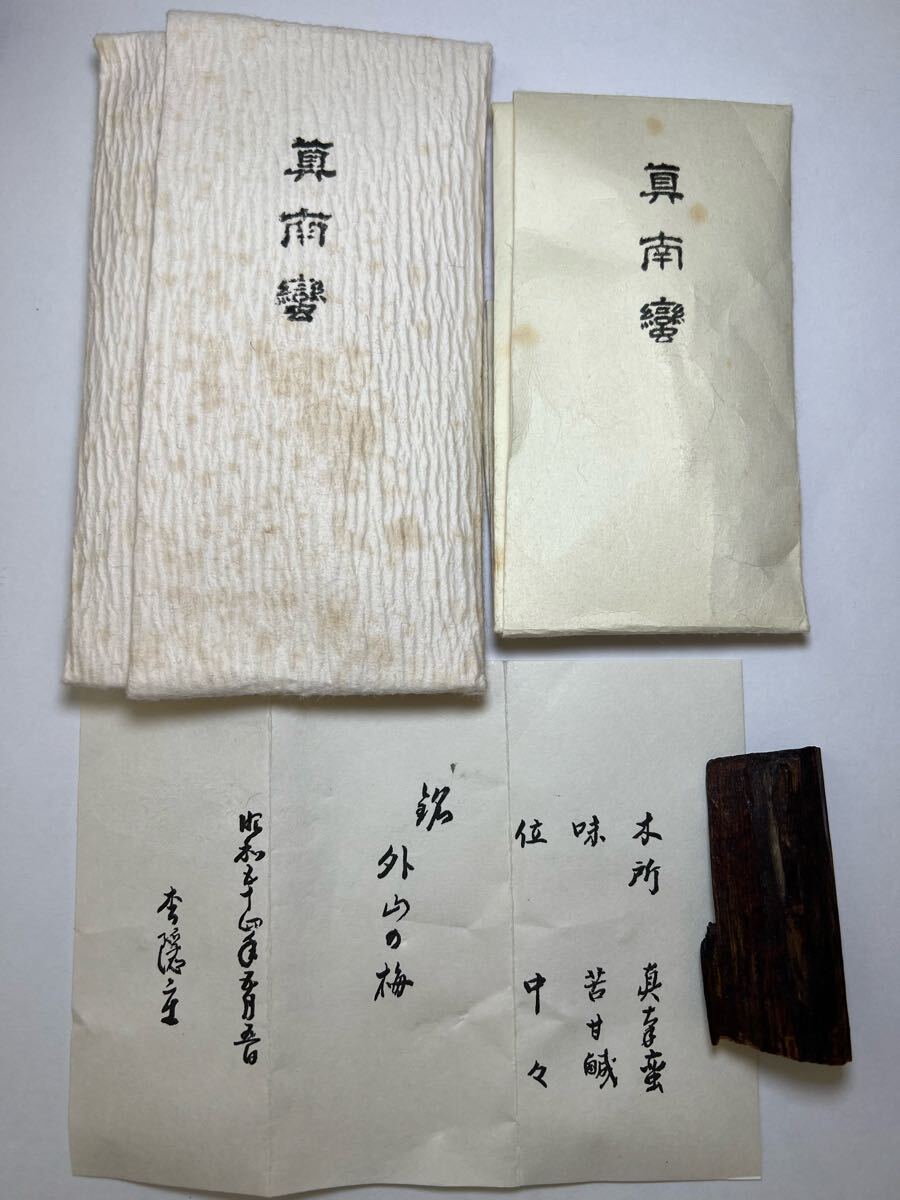 真南蠻
真南蠻
木所 真奈蛮
味 苦甘鹹
位 中々
銘
外山の梅
昭和五十四年五月五日